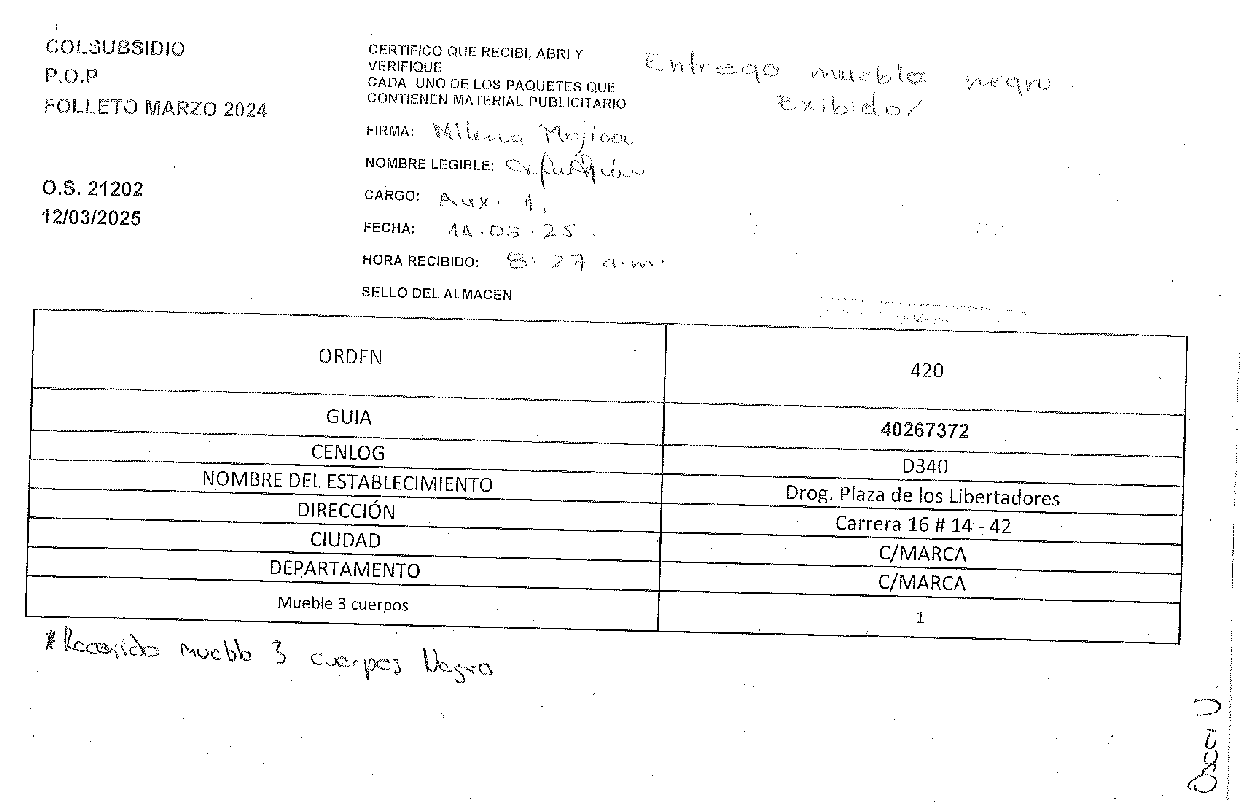 COLSUBSIDIO
P.O.P
FOLLETO MARZO 2024
O.S. 21202
12/03/2025
CERTIFICO QUE RECIBI, ABRI Y
VERIFIQUE
CADA UNO DE LOS PAQUETES QUE
CONTIENEN MATERIAL PUBLICITARIO
FIRMA: Milena Mojica
NOMBRE LEGIBLE:
CARGO: Aux. 1.
FECHA: 14.03.25.
HORA RECIBIDO: 8:27 a.m.
SELLO DEL ALMACEN
Entrego mueble negro.
Exibido/
ORDEN 420
GUIA 40267372
CENLOG D340
NOMBRE DEL ESTABLECIMIENTO Drog. Plaza de los Libertadores
DIRECCIÓN Carrera 16 # 14 - 42
CIUDAD C/MARCA
DEPARTAMENTO C/MARCA
Mueble 3 cuerpos 1
* Recogido mueble 3 cuerpos Negro
Oscar U.